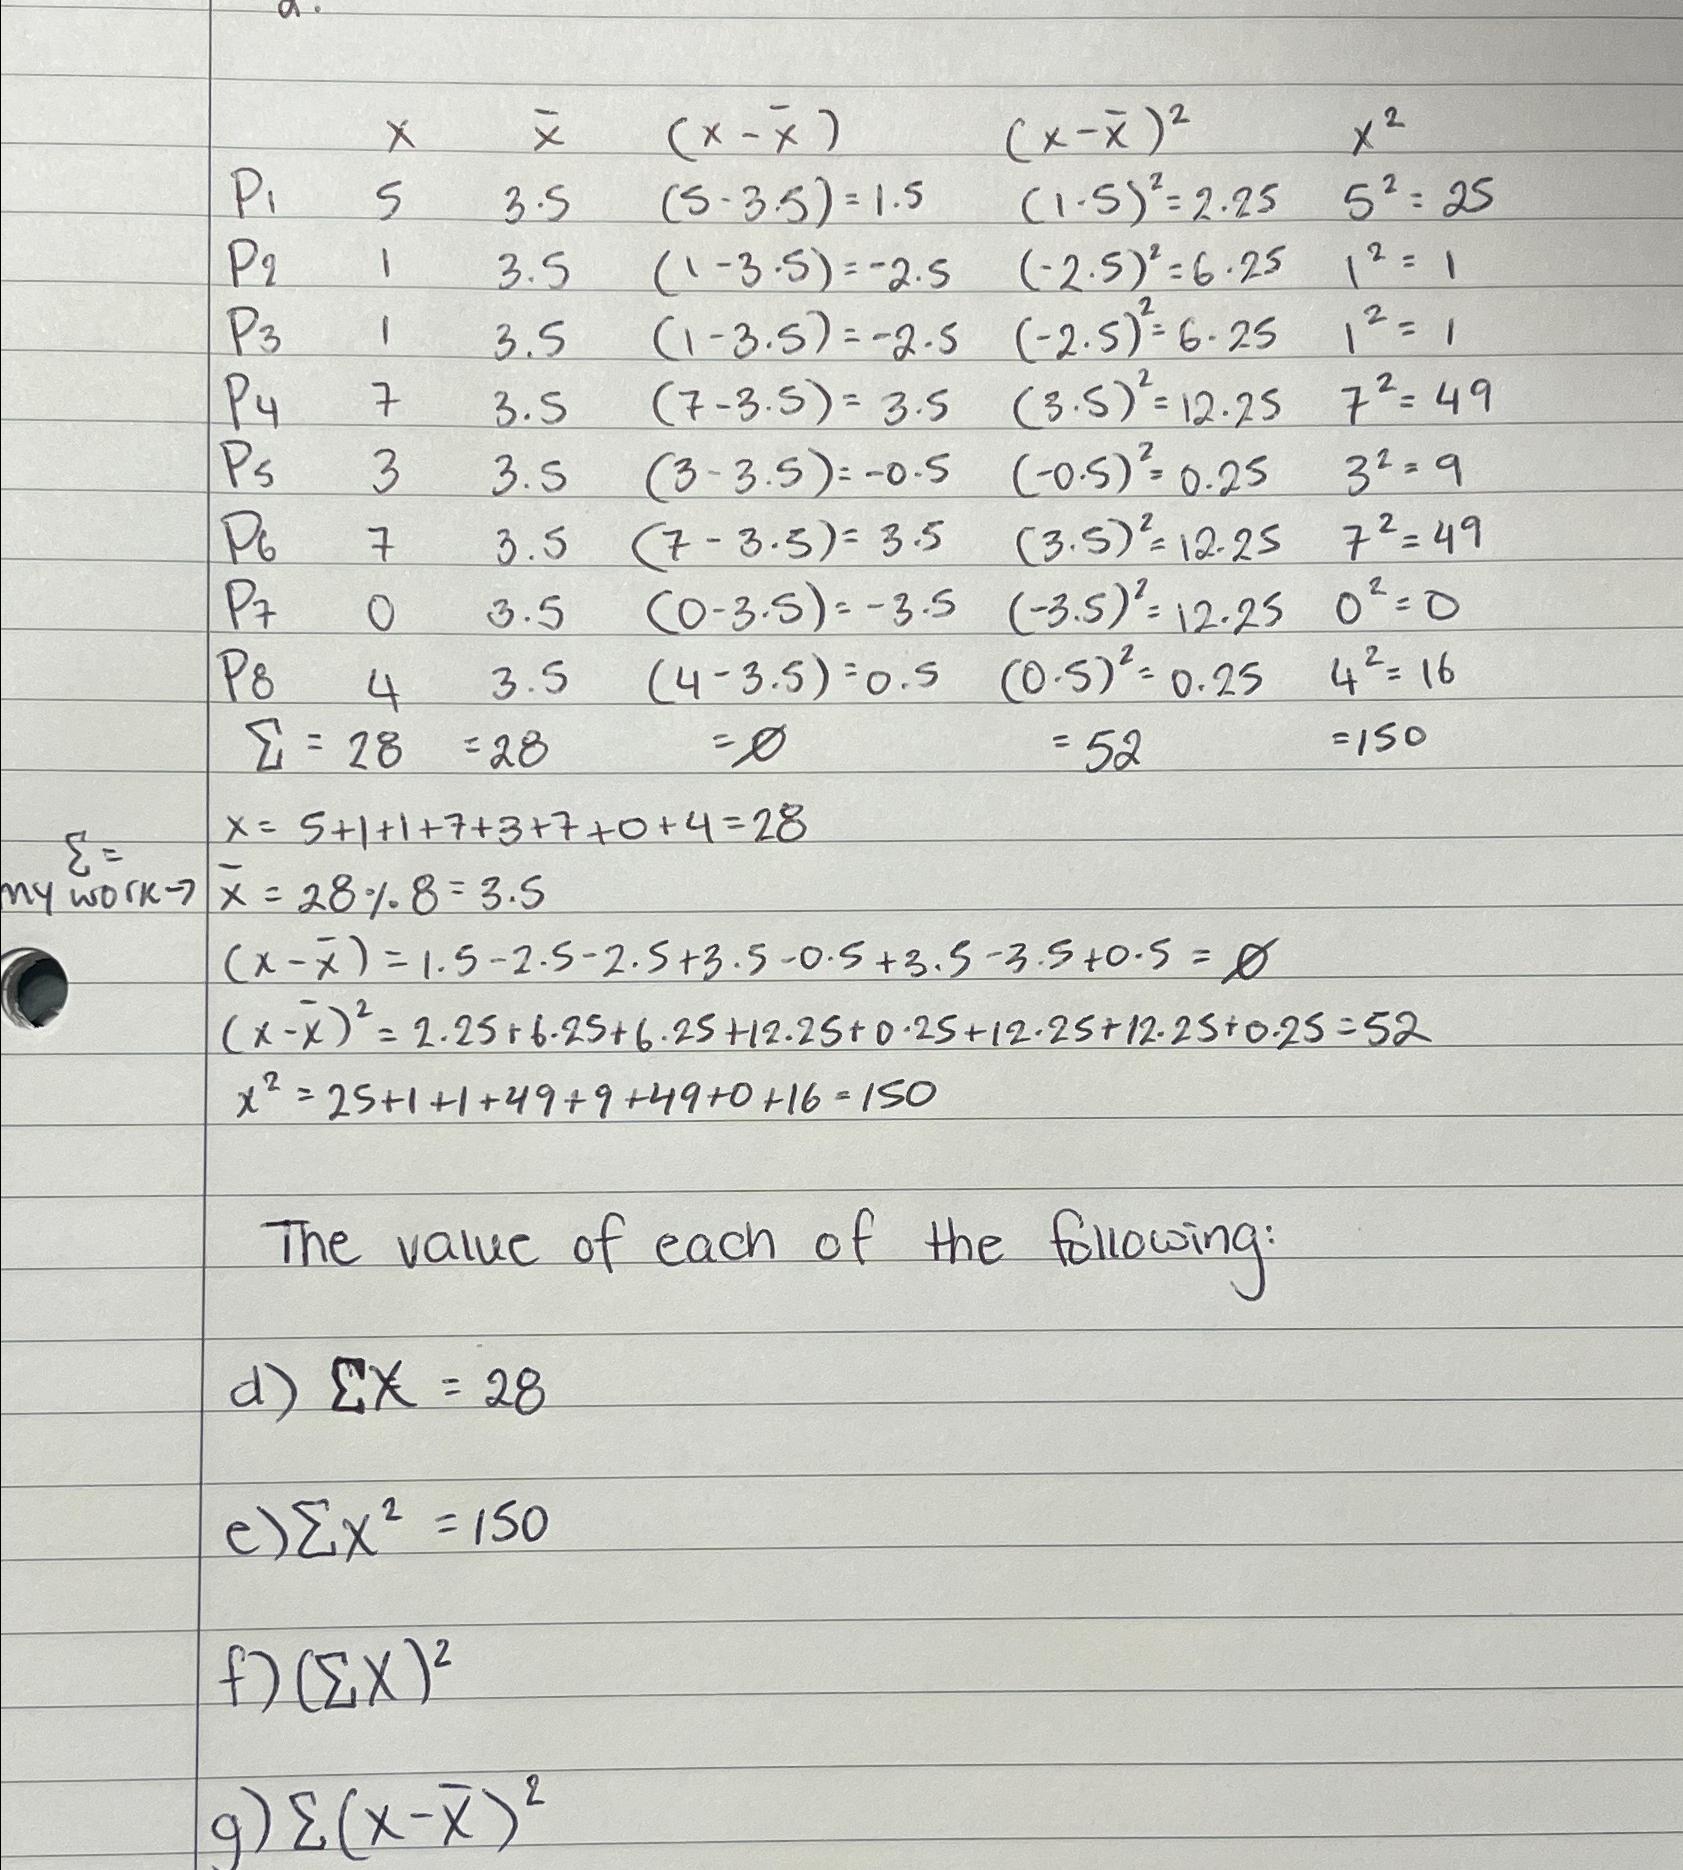 x x̄ (x-x̄) (x-x̄)² x²
P1 5 3.5 (5-3.5)=1.5 (1.5)²=2.25 5²=25
P2 1 3.5 (1-3.5)=-2.5 (-2.5)²=6.25 1²=1
P3 1 3.5 (1-3.5)=-2.5 (-2.5)²=6.25 1²=1
P4 7 3.5 (7-3.5)=3.5 (3.5)²=12.25 7²=49
P5 3 3.5 (3-3.5)=-0.5 (-0.5)²=0.25 3²=9
P6 7 3.5 (7-3.5)=3.5 (3.5)²=12.25 7²=49
P7 0 3.5 (0-3.5)=-3.5 (-3.5)²=12.25 0²=0
P8 4 3.5 (4-3.5)=0.5 (0.5)²=0.25 4²=16
Σ =28 =28 =∅ =52 =150
x = 5+1+1+7+3+7+0+4=28
Σ=
my work→ x̄ = 28 % 8 = 3.5
(x-x̄) = 1.5-2.5-2.5+3.5-0.5+3.5-3.5+0.5 = ∅
(x-x̄)² = 2.25+6.25+6.25+12.25+0.25+12.25+12.25+0.25=52
x² = 25+1+1+49+9+49+0+16=150
The value of each of the following:
d) ΣX = 28
e) Σx² = 150
f) (ΣX)²
g) Σ(x-x̄)²